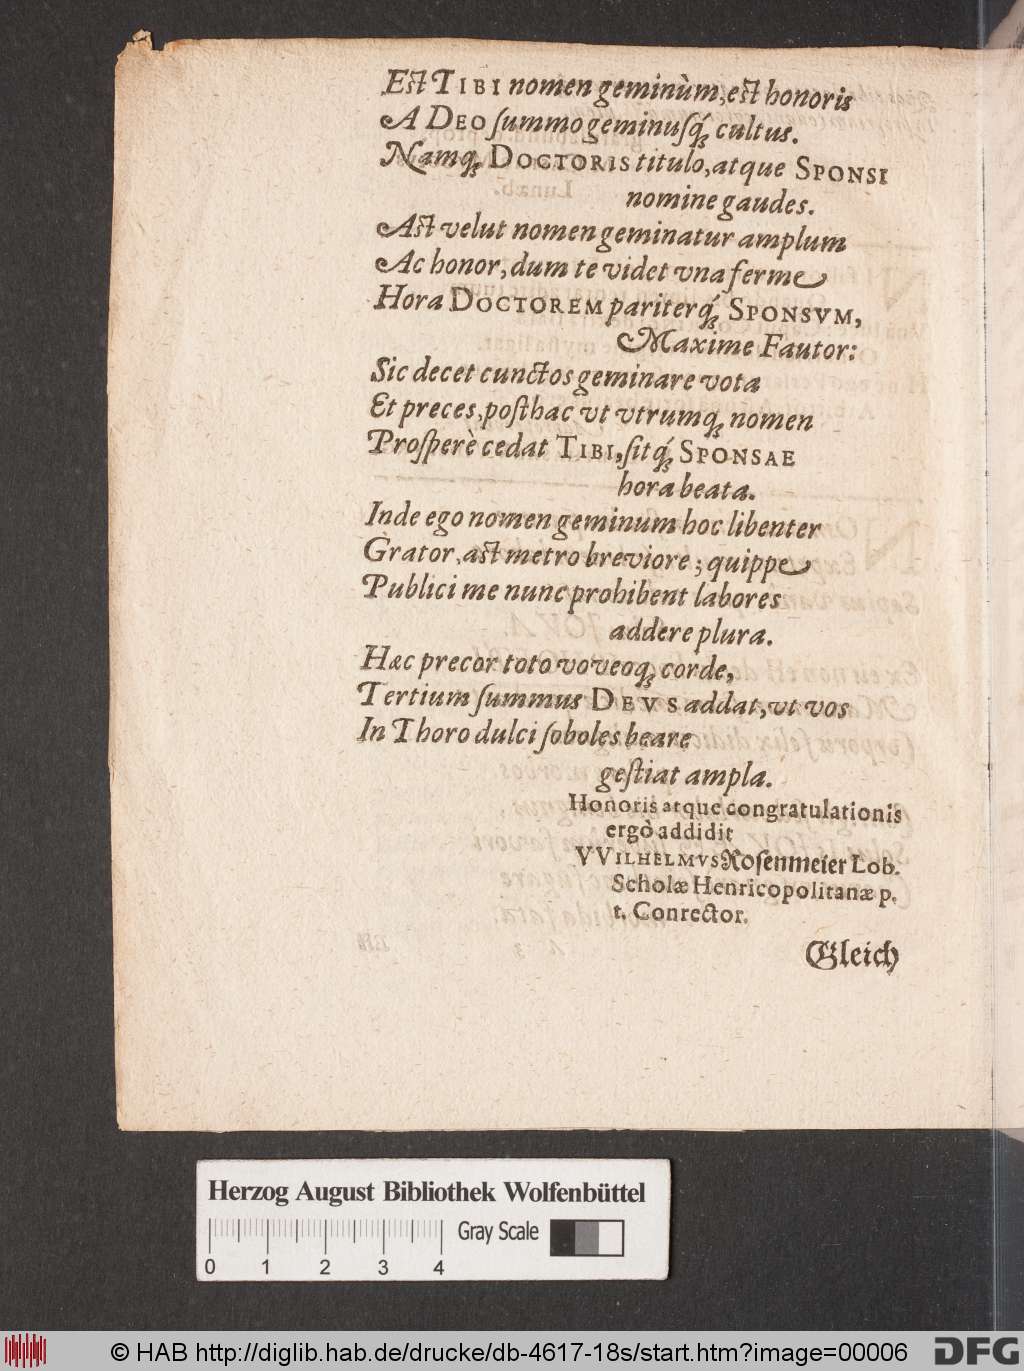 Est TIBI nomen geminùm, est honoris
A DEO summo geminusq́; cultus.
Namq; DOCTORIS titulo, atque SPONSI
nomine gaudes.
Ast velut nomen geminatur amplum
Ac honor, dum te videt vna ferme
Hora DOCTOREM pariterq́; SPONSVM,
Maxime Fautor:
Sic decet cunctos geminare vota
Et preces, posthac vt vtrumq; nomen
Prosperè cedat TIBI, sitq́; SPONSAE
hora beata.
Inde ego nomen geminum hoc libenter
Grator, ast metro breviore; quippe
Publici me nunc prohibent labores
addere plura.
Hæc precor toto voveoq; corde,
Tertium summus DEVS addat, vt vos
In Thoro dulci soboles beare
gestiat ampla.
Honoris atque congratulationis
ergò addidit
VVILHELMVS Rosenmeier Lob.
Scholæ Henricopolitanæ p.
t. Conrector.
Gleich
Herzog August Bibliothek Wolfenbüttel
Gray Scale
0 1 2 3 4
© HAB http://diglib.hab.de/drucke/db-4617-18s/start.htm?image=00006
DFG